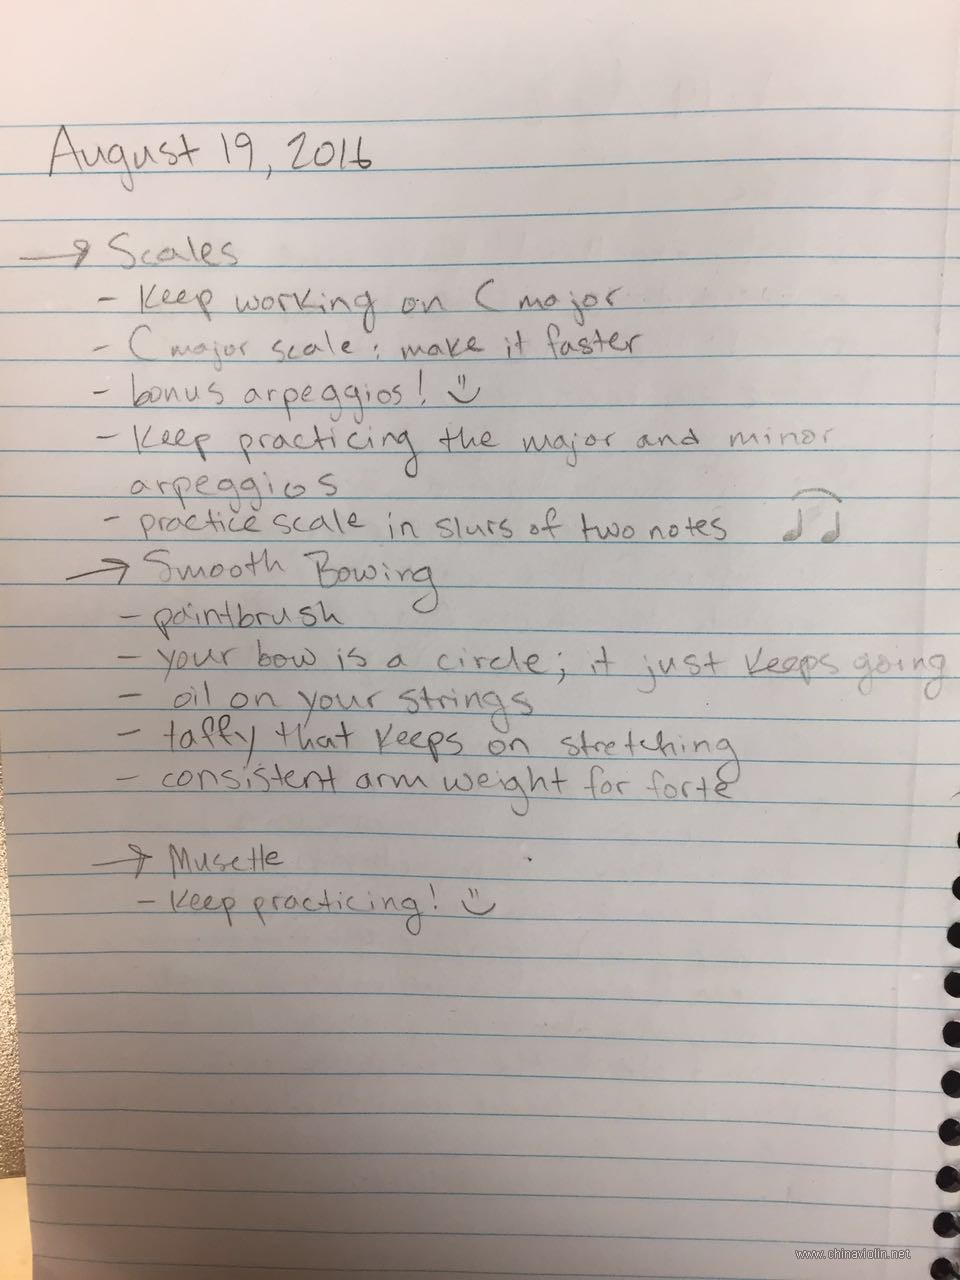 August 19, 2016
→ Scales
- Keep working on C major
- C major scale: make it faster
- bonus arpeggios! :)
- Keep practicing the major and minor
arpeggios
- practice scale in slurs of two notes
→ Smooth Bowing
- paintbrush
- your bow is a circle; it just keeps going
- oil on your strings
- taffy that keeps on stretching
- consistent arm weight for forte
→ Musette
- Keep practicing! :)
www.chinaviolin.net